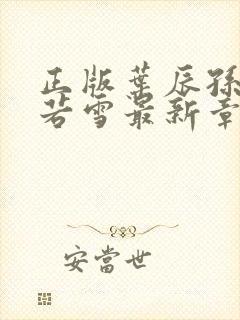 正版葉辰孫
若雪最新章
安當世